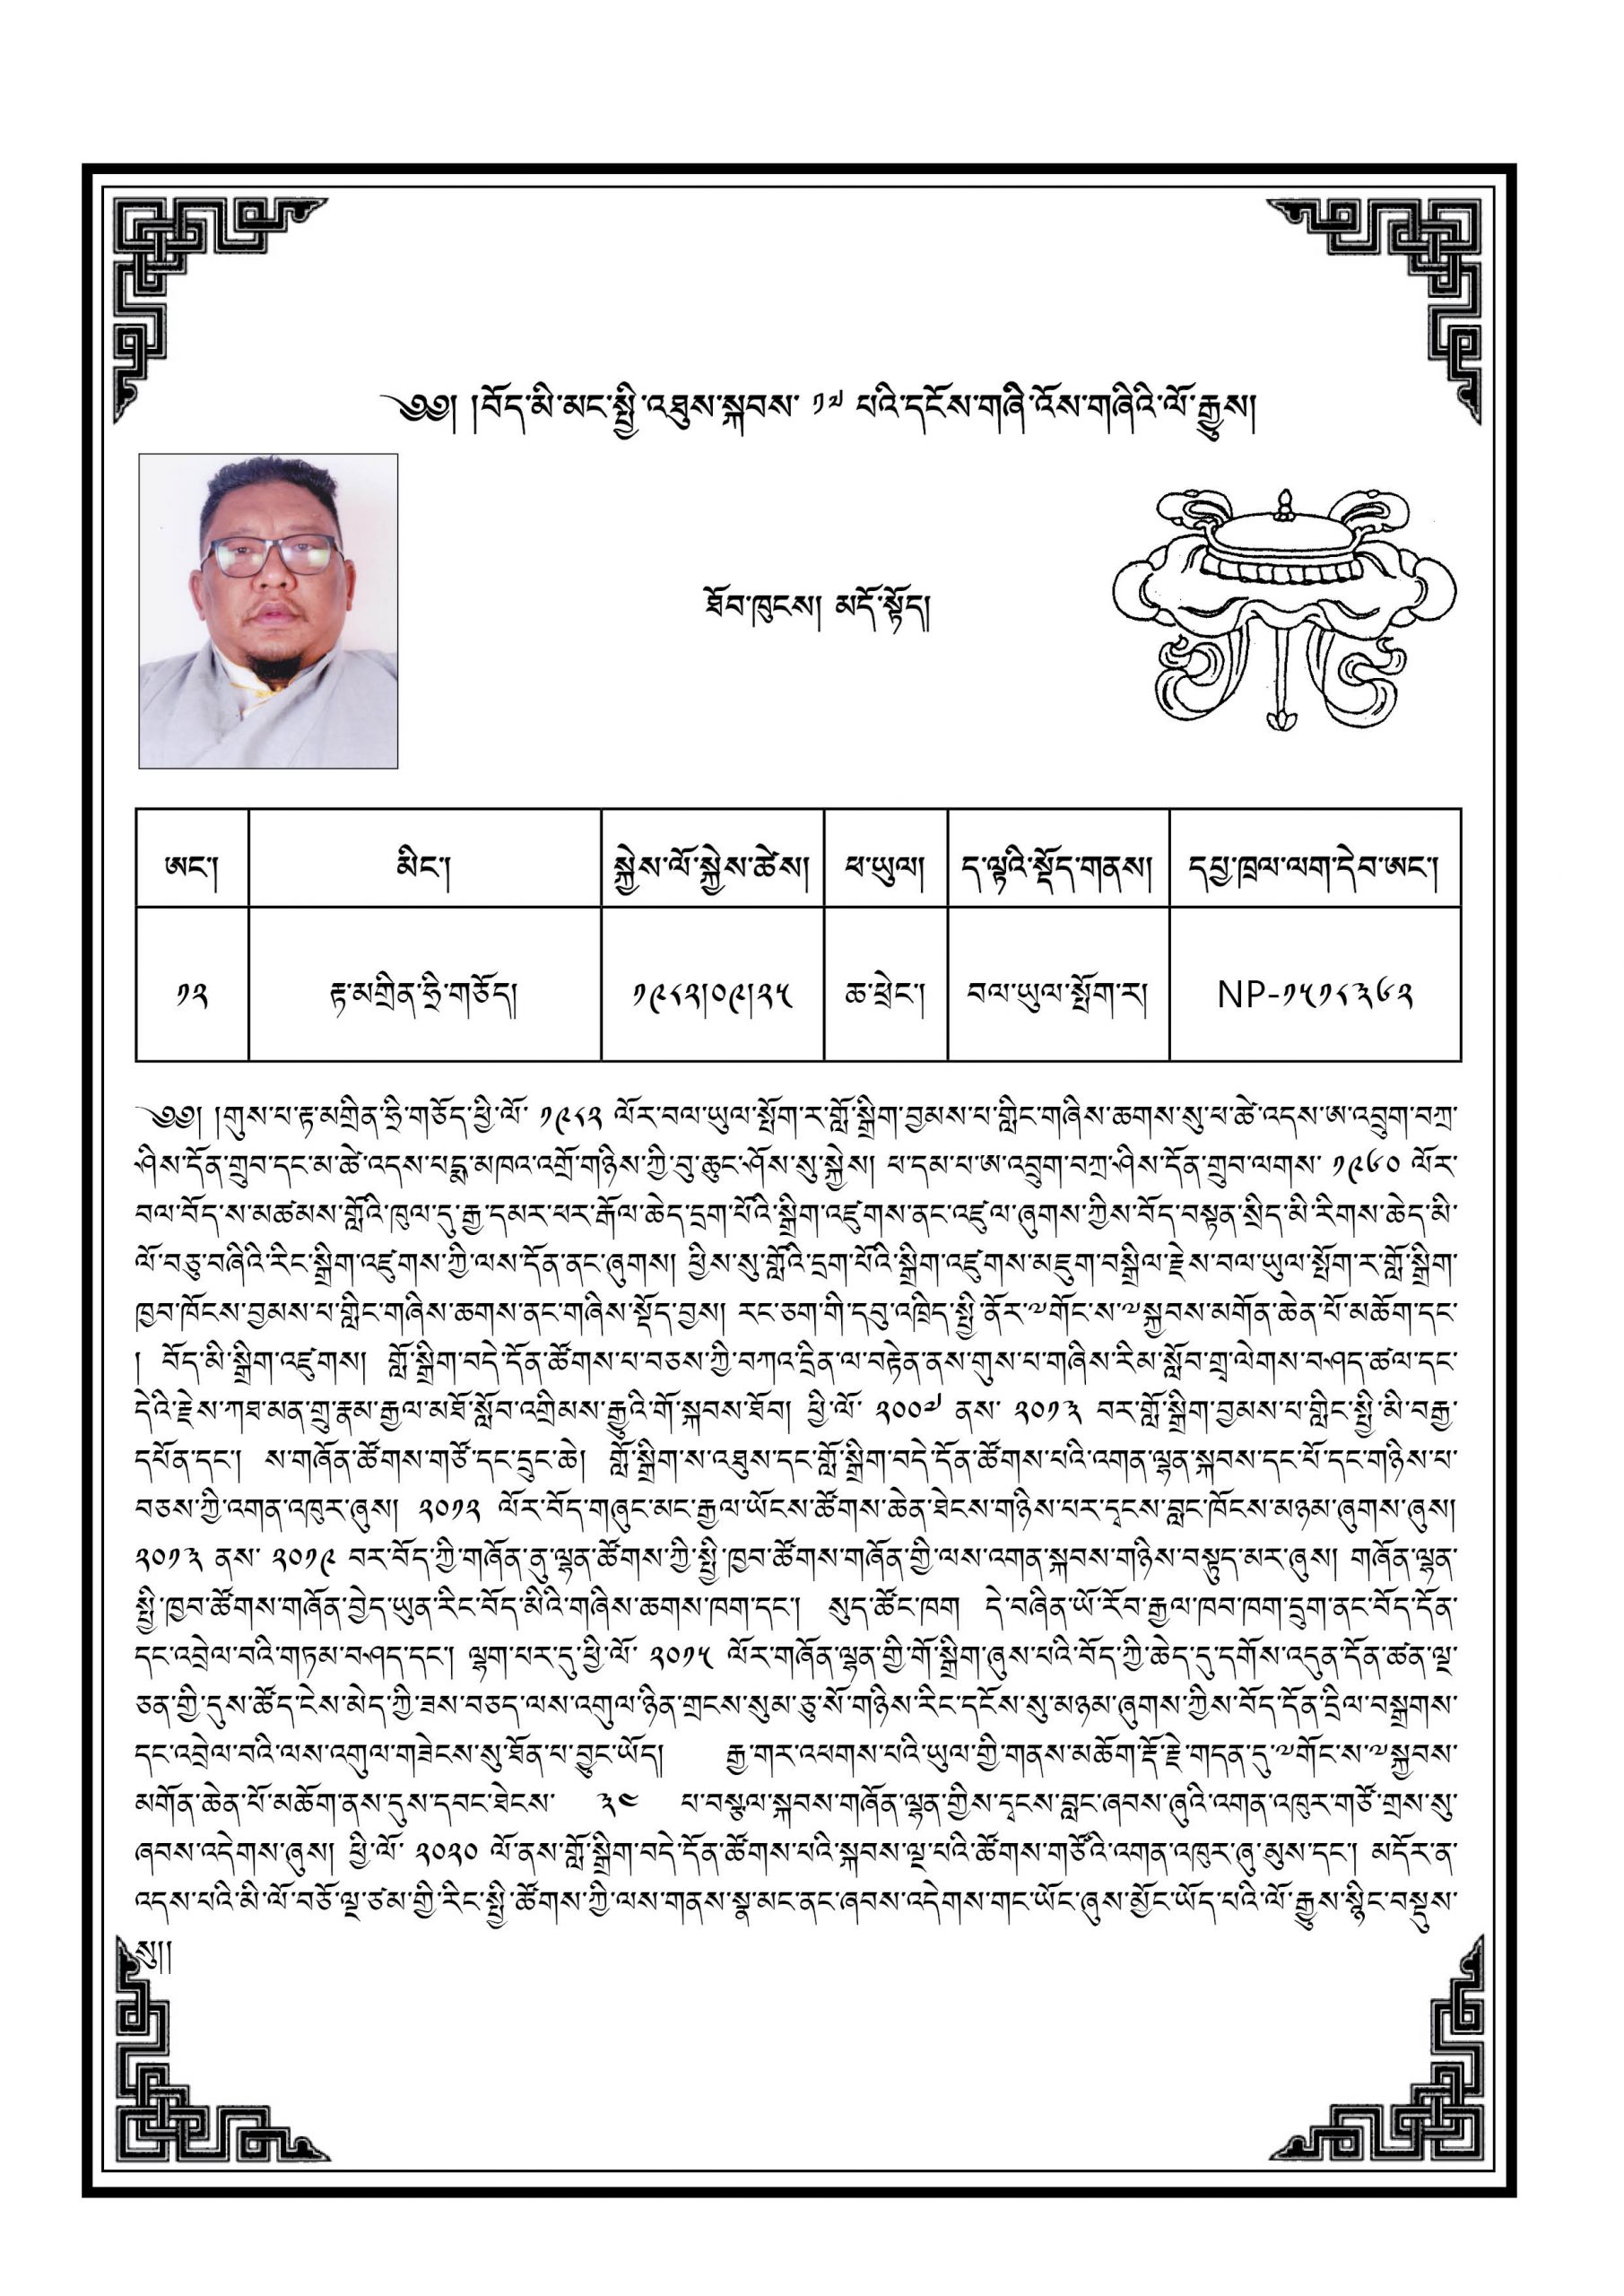 ༄༅། །བོད་མི་མང་སྤྱི་འཐུས་སྐབས་ ༡༧ པའི་དངོས་གཞིེ་འོས་གཞིའི་ལོ་རྒྱུས།
ཐོབ་ཁུངས། མདོ་སྟོད།
ཨང་། མིང་། སྐྱེས་ལོ་སྐྱེས་ཚེས། ཕ་ཡུལ། ད་ལྟའི་སྡོད་གནས། དཔྱ་ཁྲལ་ལག་དེབ་ཨང་།
༡༢ རྟ་མགྲིན་ཧྲི་གཙོད། ༡༩༨༢།༠༩།༢༥ ཆ་ཕྲེང་། བལ་ཡུལ་སྤོག་ར། NP-༡༥༡༨༣༦༢
༄༅། །གུས་པ་རྟ་མགྲིན་ཧྲི་གཙོད་ཕྱི་ལོ་ ༡༩༨༢ ལོར་བལ་ཡུལ་སྤོག་ར་གློ་སྒྲིག་བྱམས་པ་གླིང་གཞིས་ཆགས་སུ་ཕ་ཚེ་འདས་ཨ་འབྲུག་བཀྲ་
ཤིས་དོན་གྲུབ་དང་མ་ཚེ་འདས་པདྨ་མཁའ་འགྲོ་གཉིས་ཀྱི་བུ་ཆུང་ཤོས་སུ་སྐྱེས། ཕ་དམ་པ་ཨ་འབྲུག་བཀྲ་ཤིས་དོན་གྲུབ་ལགས་ ༡༩༦༠ ལོར་
བལ་བོད་ས་མཚམས་གློའི་ཁུལ་དུ་རྒྱ་དམར་ཕར་རྒོལ་ཆེད་དྲག་པོའི་སྒྲིག་འཛུགས་ནང་འཛུལ་ཞུགས་ཀྱིས་བོད་བསྟན་སྲིད་མི་རིགས་ཆེད་མི་
ལོ་བཅུ་བཞིའི་རིང་སྒྲིག་འཛུགས་ཀྱི་ལས་དོན་ནང་ཞུགས། ཕྱིས་སུ་གློའི་དྲག་པོའི་སྒྲིག་འཛུགས་མཇུག་བསྒྲིལ་རྗེས་བལ་ཡུལ་སྤོག་ར་གློ་སྒྲིག་
ཁྱབ་ཁོངས་བྱམས་པ་གླིང་གཞིས་ཆགས་ནང་གཞིས་སྡོད་བྱས། རང་ཅག་གི་དབུ་འཁྲིད་སྤྱི་ནོར་༧གོང་ས་༧སྐྱབས་མགོན་ཆེན་པོ་མཆོག་དང་
། བོད་མི་སྒྲིག་འཛུགས། གློ་སྒྲིག་བདེ་དོན་ཚོགས་པ་བཅས་ཀྱི་བཀའ་དྲིན་ལ་བརྟེན་ནས་གུས་པ་གཞིས་རིམ་སློབ་གྲྭ་ལེགས་བཤད་ཚལ་དང་
དེའི་རྗེས་ཀཐ་མན་གྲུ་རྣམ་རྒྱལ་མཐོ་སློབ་འགྲིམས་རྒྱུའི་གོ་སྐབས་ཐོབ། ཕྱི་ལོ་ ༢༠༠༧ ནས་ ༢༠༡༣ བར་གློ་སྒྲིག་བྱམས་པ་གླིང་སྤྱི་མི་བརྒྱ་
དཔོན་དང་། ས་གཞོན་ཚོགས་གཙོ་དང་དྲུང་ཆེ། གློ་སྒྲིག་ས་འཐུས་དང་གློ་སྒྲིག་བདེ་དོན་ཚོགས་པའི་འགན་ལྷན་སྐབས་དང་པོ་དང་གཉིས་པ་
བཅས་ཀྱི་འགན་འཁུར་ཞུས། ༢༠༡༢ ལོར་བོད་གཞུང་མང་རྒྱལ་ཡོངས་ཚོགས་ཆེན་ཐེངས་གཉིས་པར་དྭངས་བླང་ཁོངས་མཉམ་ཞུགས་ཞུས།
༢༠༡༣ ནས་ ༢༠༡༩ བར་བོད་ཀྱི་གཞོན་ནུ་ལྷན་ཚོགས་ཀྱི་སྤྱི་ཁྱབ་ཚོགས་གཞོན་གྱི་ལས་འགན་སྐབས་གཉིས་བསྟུད་མར་ཞུས། གཞོན་ལྷན་
སྤྱི་ཁྱབ་ཚོགས་གཞོན་བྱེད་ཡུན་རིང་བོད་མིའི་གཞིས་ཆགས་ཁག་དང་། སུད་ཚོང་ཁག དེ་བཞིན་ཡོ་རོབ་རྒྱལ་ཁབ་ཁག་དྲུག་ནང་བོད་དོན་
དང་འབྲེལ་བའི་གཏམ་བཤད་དང་། ལྷག་པར་དུ་ཕྱི་ལོ་ ༢༠༡༥ ལོར་གཞོན་ལྷན་གྱི་གོ་སྒྲིག་ཞུས་པའི་བོད་ཀྱི་ཆེད་དུ་དགོས་འདུན་དོན་ཚན་ལྔ་
ཅན་གྱི་དུས་ཚོད་ངེས་མེད་ཀྱི་ཟས་བཅད་ལས་འགུལ་ཉིན་གྲངས་སུམ་ཅུ་སོ་གཉིས་རིང་དངོས་སུ་མཉམ་ཞུགས་ཀྱིས་བོད་དོན་དྲིལ་བསྒྲགས་
དང་འབྲེལ་བའི་ལས་འགུལ་གཟེངས་སུ་ཐོན་པ་བྱུང་ཡོད། རྒྱ་གར་འཕགས་པའི་ཡུལ་གྱི་གནས་མཆོག་རྡོ་རྗེ་གདན་དུ་༧གོང་ས་༧སྐྱབས་
མགོན་ཆེན་པོ་མཆོག་ནས་དུས་དབང་ཐེངས་ ༣༤ པ་བསྩལ་སྐབས་གཞོན་ལྷན་གྱིས་དྭངས་བླང་ཞབས་ཞུའི་འགན་འཁུར་གཙོ་གྲས་སུ་
ཞབས་འདེགས་ཞུས། ཕྱི་ལོ་ ༢༠༢༠ ལོ་ནས་གློ་སྒྲིག་བདེ་དོན་ཚོགས་པའི་སྐབས་ལྔ་པའི་ཚོགས་གཙོའི་འགན་འཁུར་ཞུ་མུས་དང་། མདོར་ན་
འདས་པའི་མི་ལོ་བཅོ་ལྔ་ཙམ་གྱི་རིང་སྤྱི་ཚོགས་ཀྱི་ལས་གནས་སྣ་མང་ནང་ཞབས་འདེགས་གང་ཡོང་ཞུས་མྱོང་ཡོད་པའི་ལོ་རྒྱུས་སྙིང་བསྡུས་
སུ།།